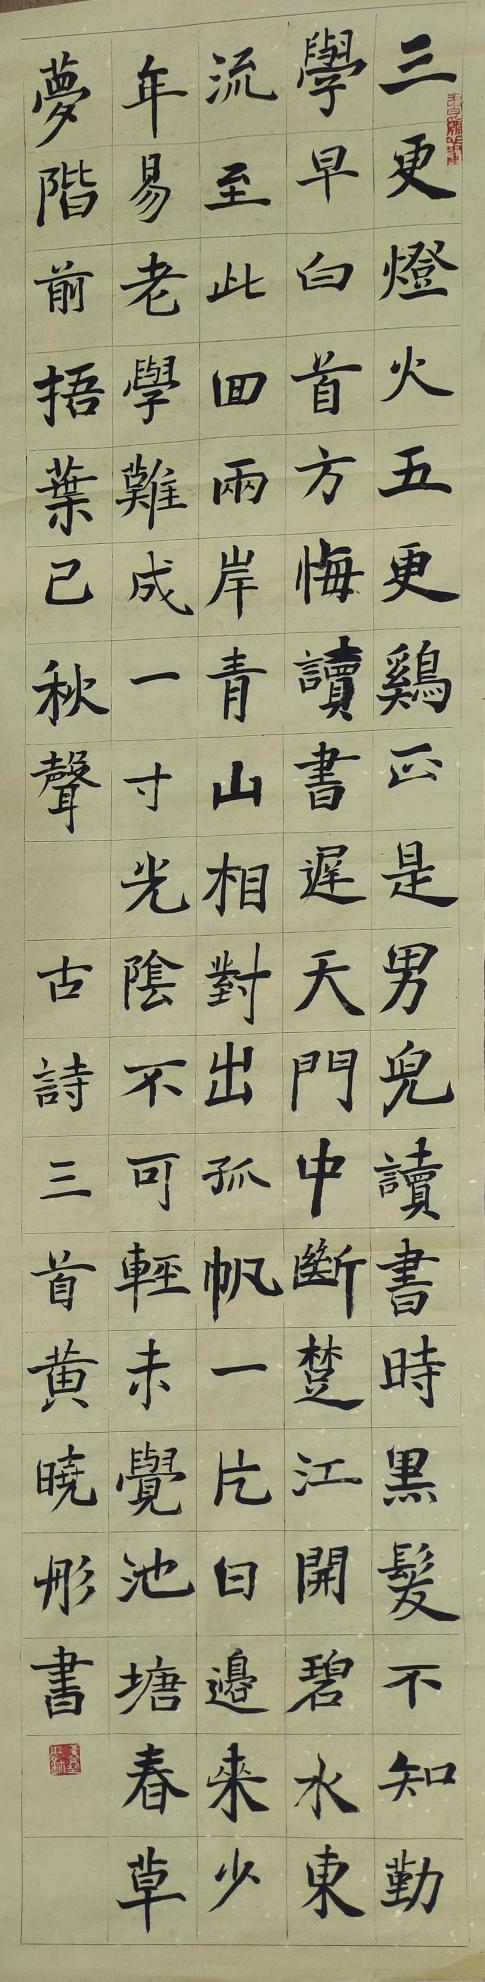 三更燈火五更鷄正是男兒讀書時黑髮不知勤
學早白首方悔讀書遲天門中斷楚江開碧水東
流至此回兩岸青山相對出孤帆一片日邊來少
年易老學難成一寸光陰不可輕未覺池塘春草
夢階前捂葉已秋聲 古詩三首黄曉彤書